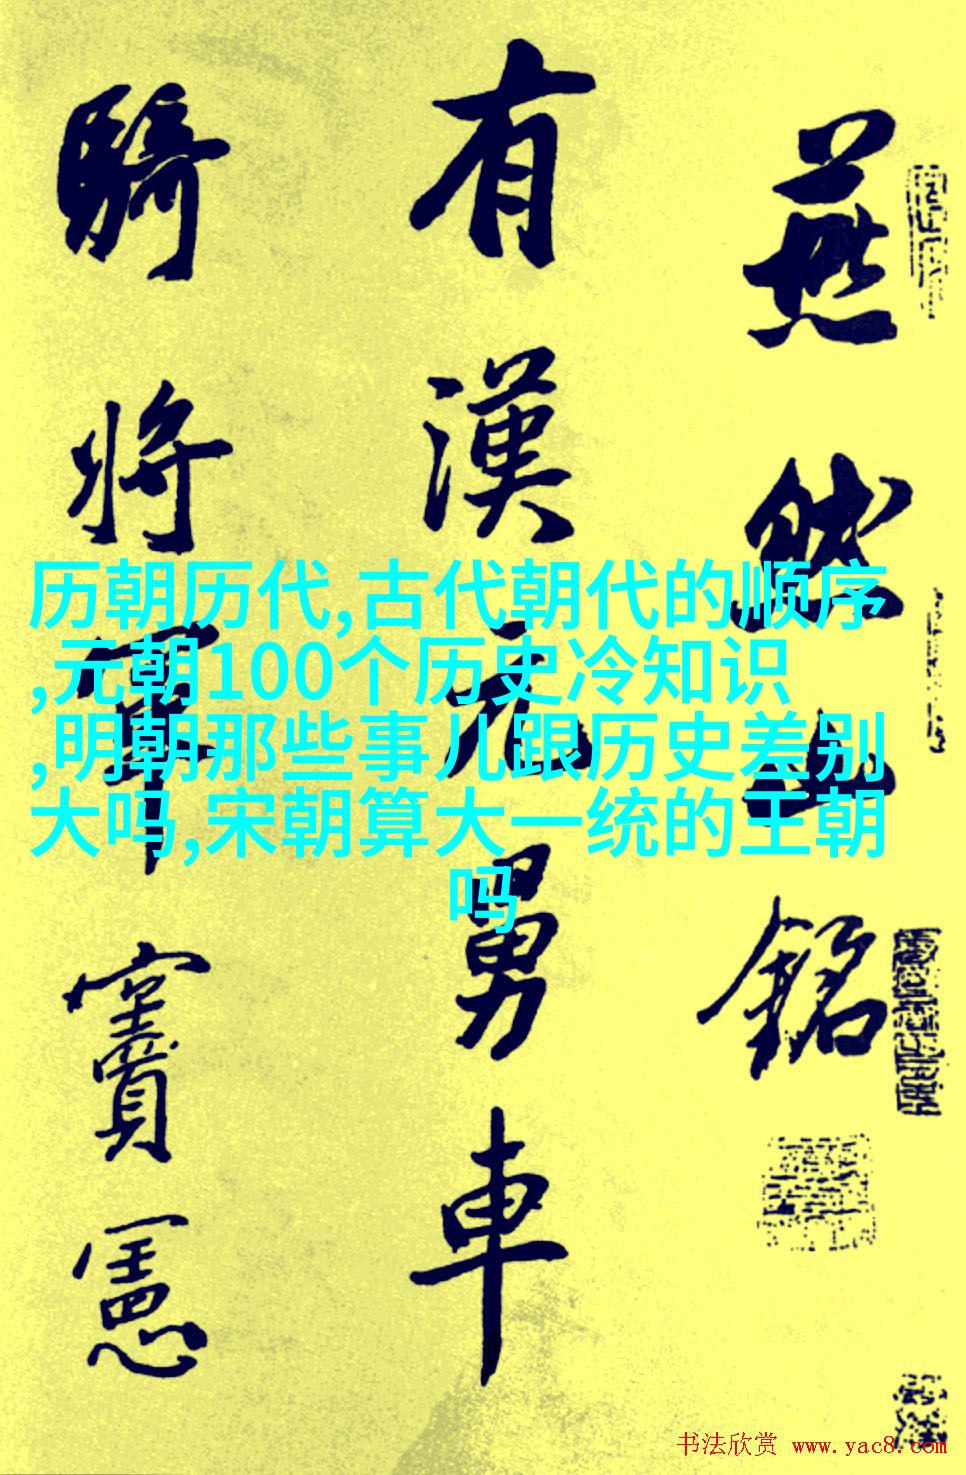 燕然山銘
有漢元舅車
騎將軍竇憲
历朝历代,古代朝代的顺序
,元朝100个历史冷知识
,明朝那些事儿跟历史差别
大吗,宋朝算大一统的王朝
吗
书法欣赏 www.yac8.com